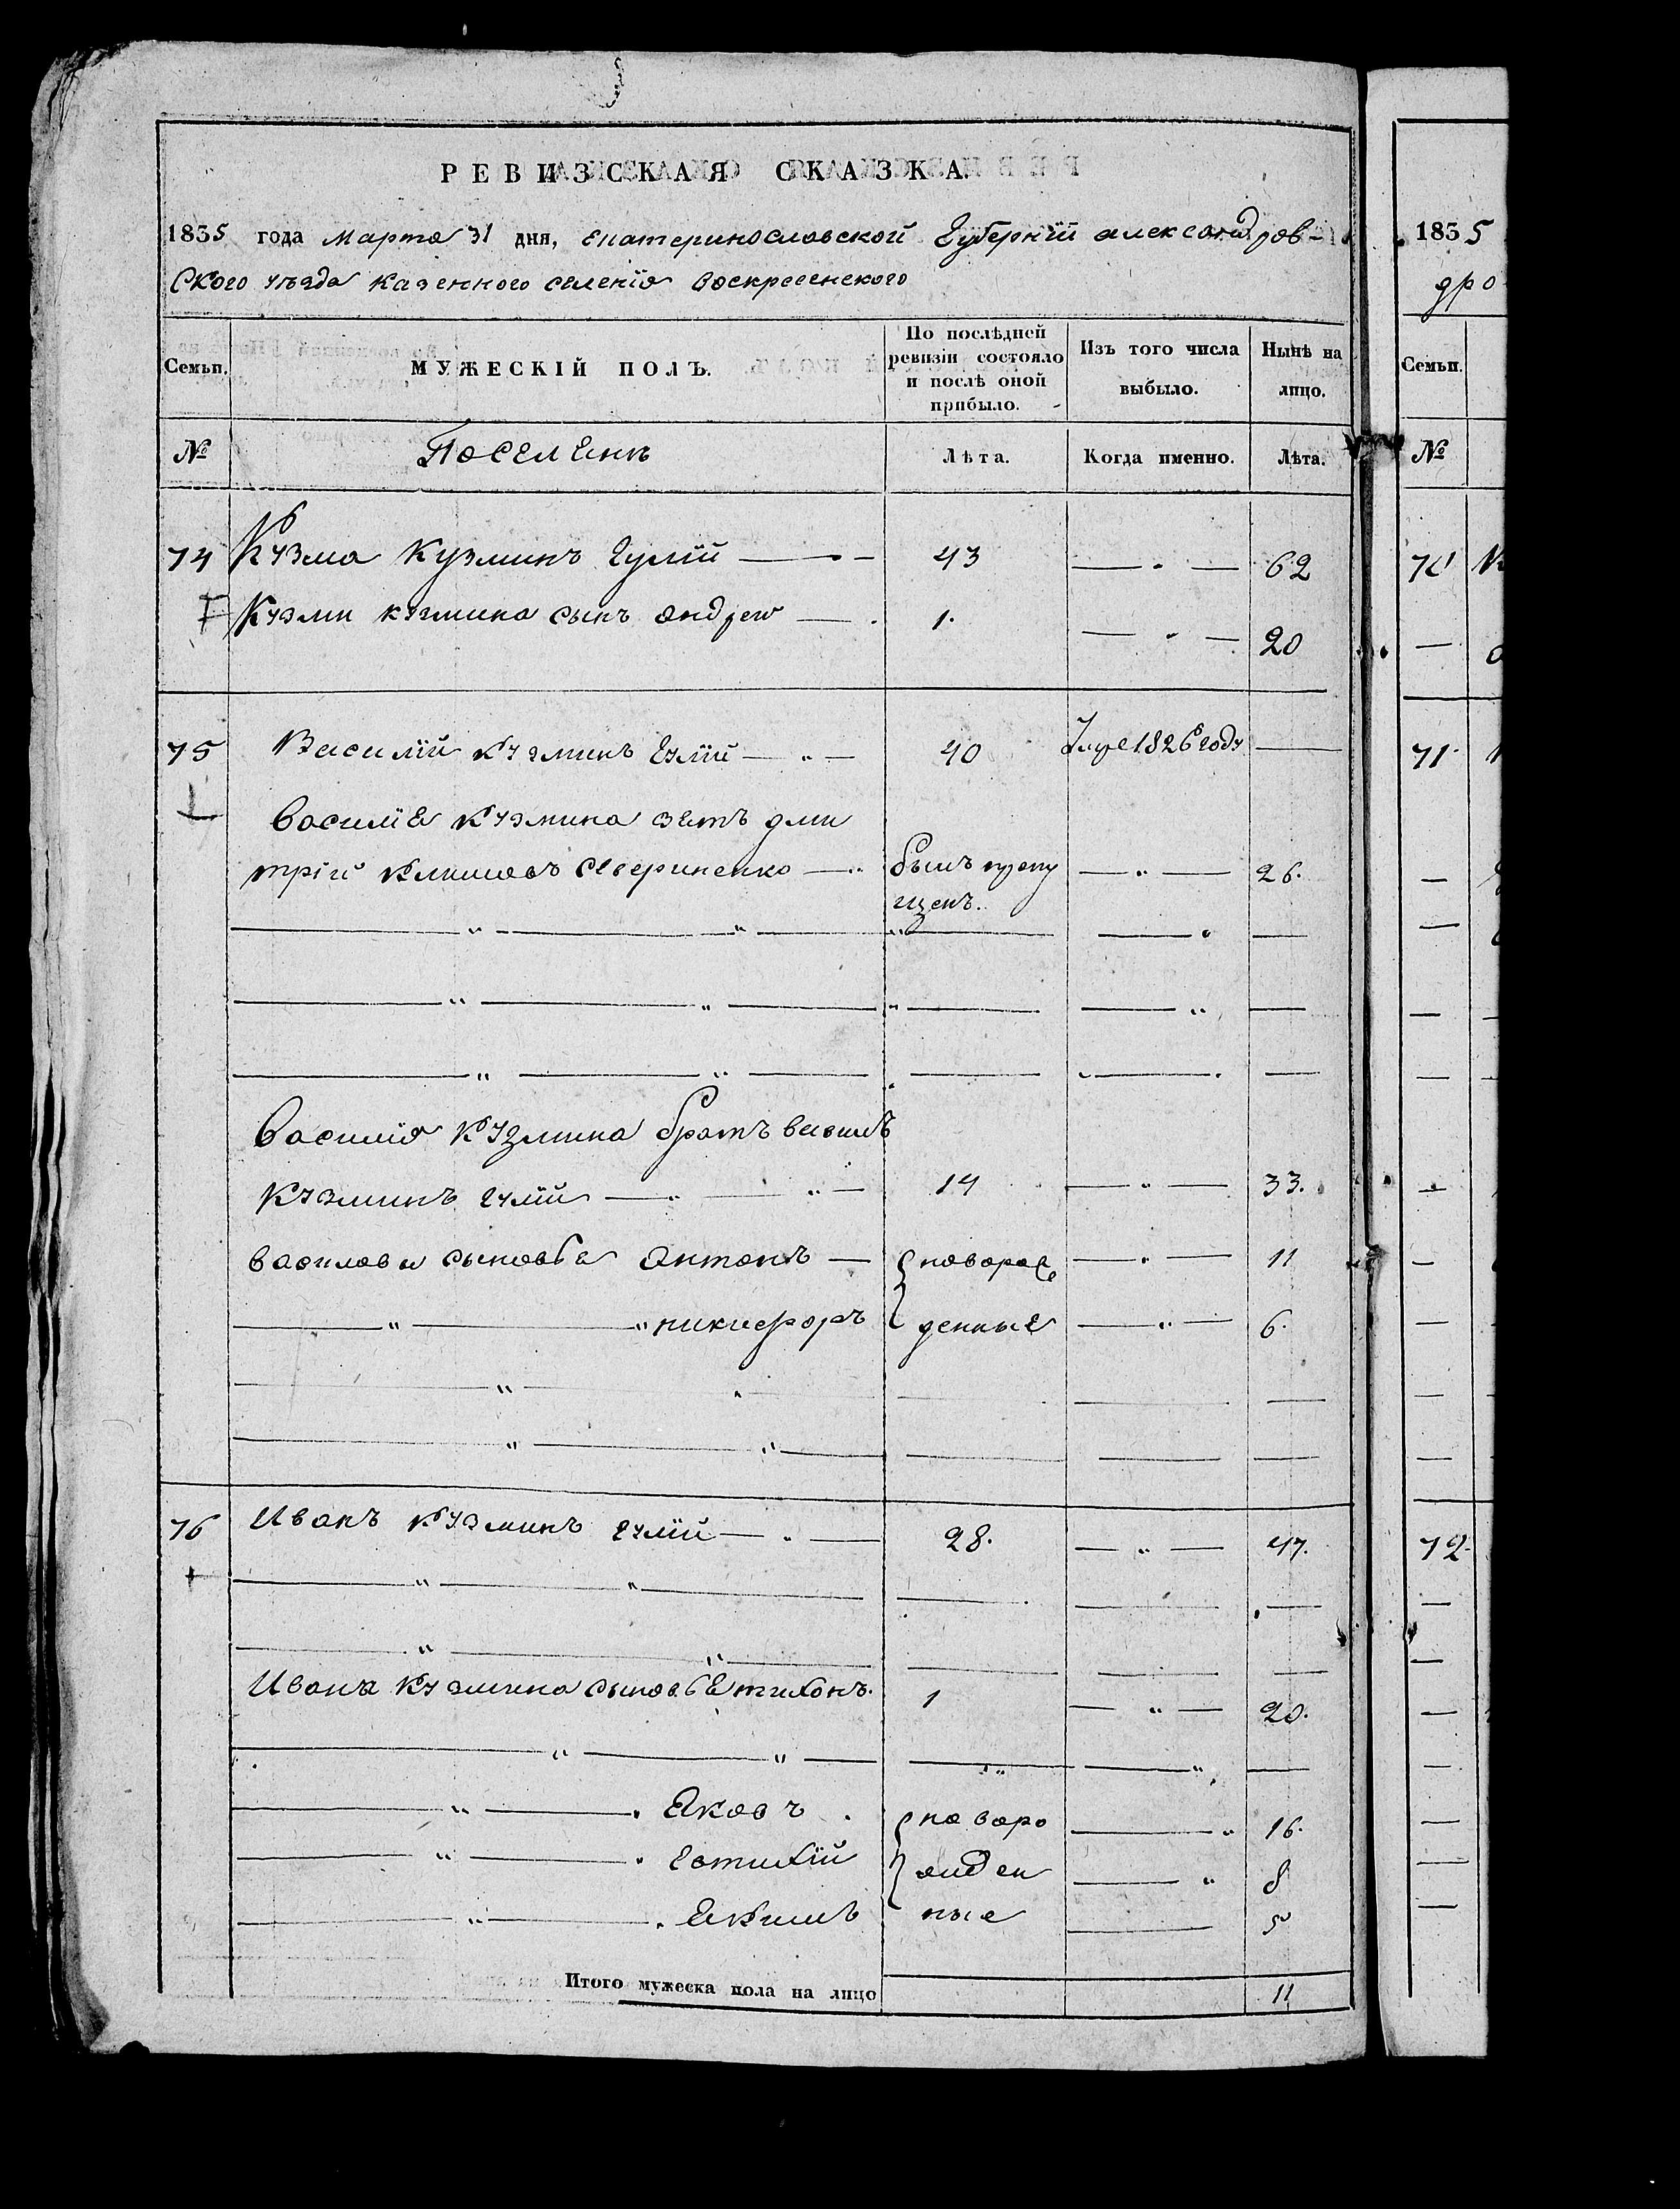 РЕВИЗСКАЯ СКАЗКА.
1835 года Марта 31 дня, Екатеринославской Губерніи александров-
ского уезда казенного селенія воскресенского
Семьи. МУЖЕСКІЙ ПОЛЪ. По послѣдней ревизіи состояло и послѣ оной прибыло. Изъ того числа выбыло. Нынѣ на лицо.
№ Поселенъ Лѣта. Когда именно. Лѣта.
74 Кузма Кузминъ Гулій 43 62
Кузми кузмина сынъ андреи 1. 20
75 Василій кузминъ Гулій 40 Умре 1826 году
василіе кузмина зеть дми
трій Климовъ Севериненко былъ пропу 26.
щенъ.
василія кузмина братъ василь
кузминъ гулій 14 33.
василова сыновбе антонъ новорож 11
никифоръ денные 6.
76 Иванъ кузминъ гулій 28. 47.
Ивана кузмина сыновбе тихонъ. 1 20.
Яковъ новоро 16.
Евтихій жден 8
Екимъ ные 5
Итого мужеска пола на лицо 11
1835
дро
Семьи.
№
70
71
72